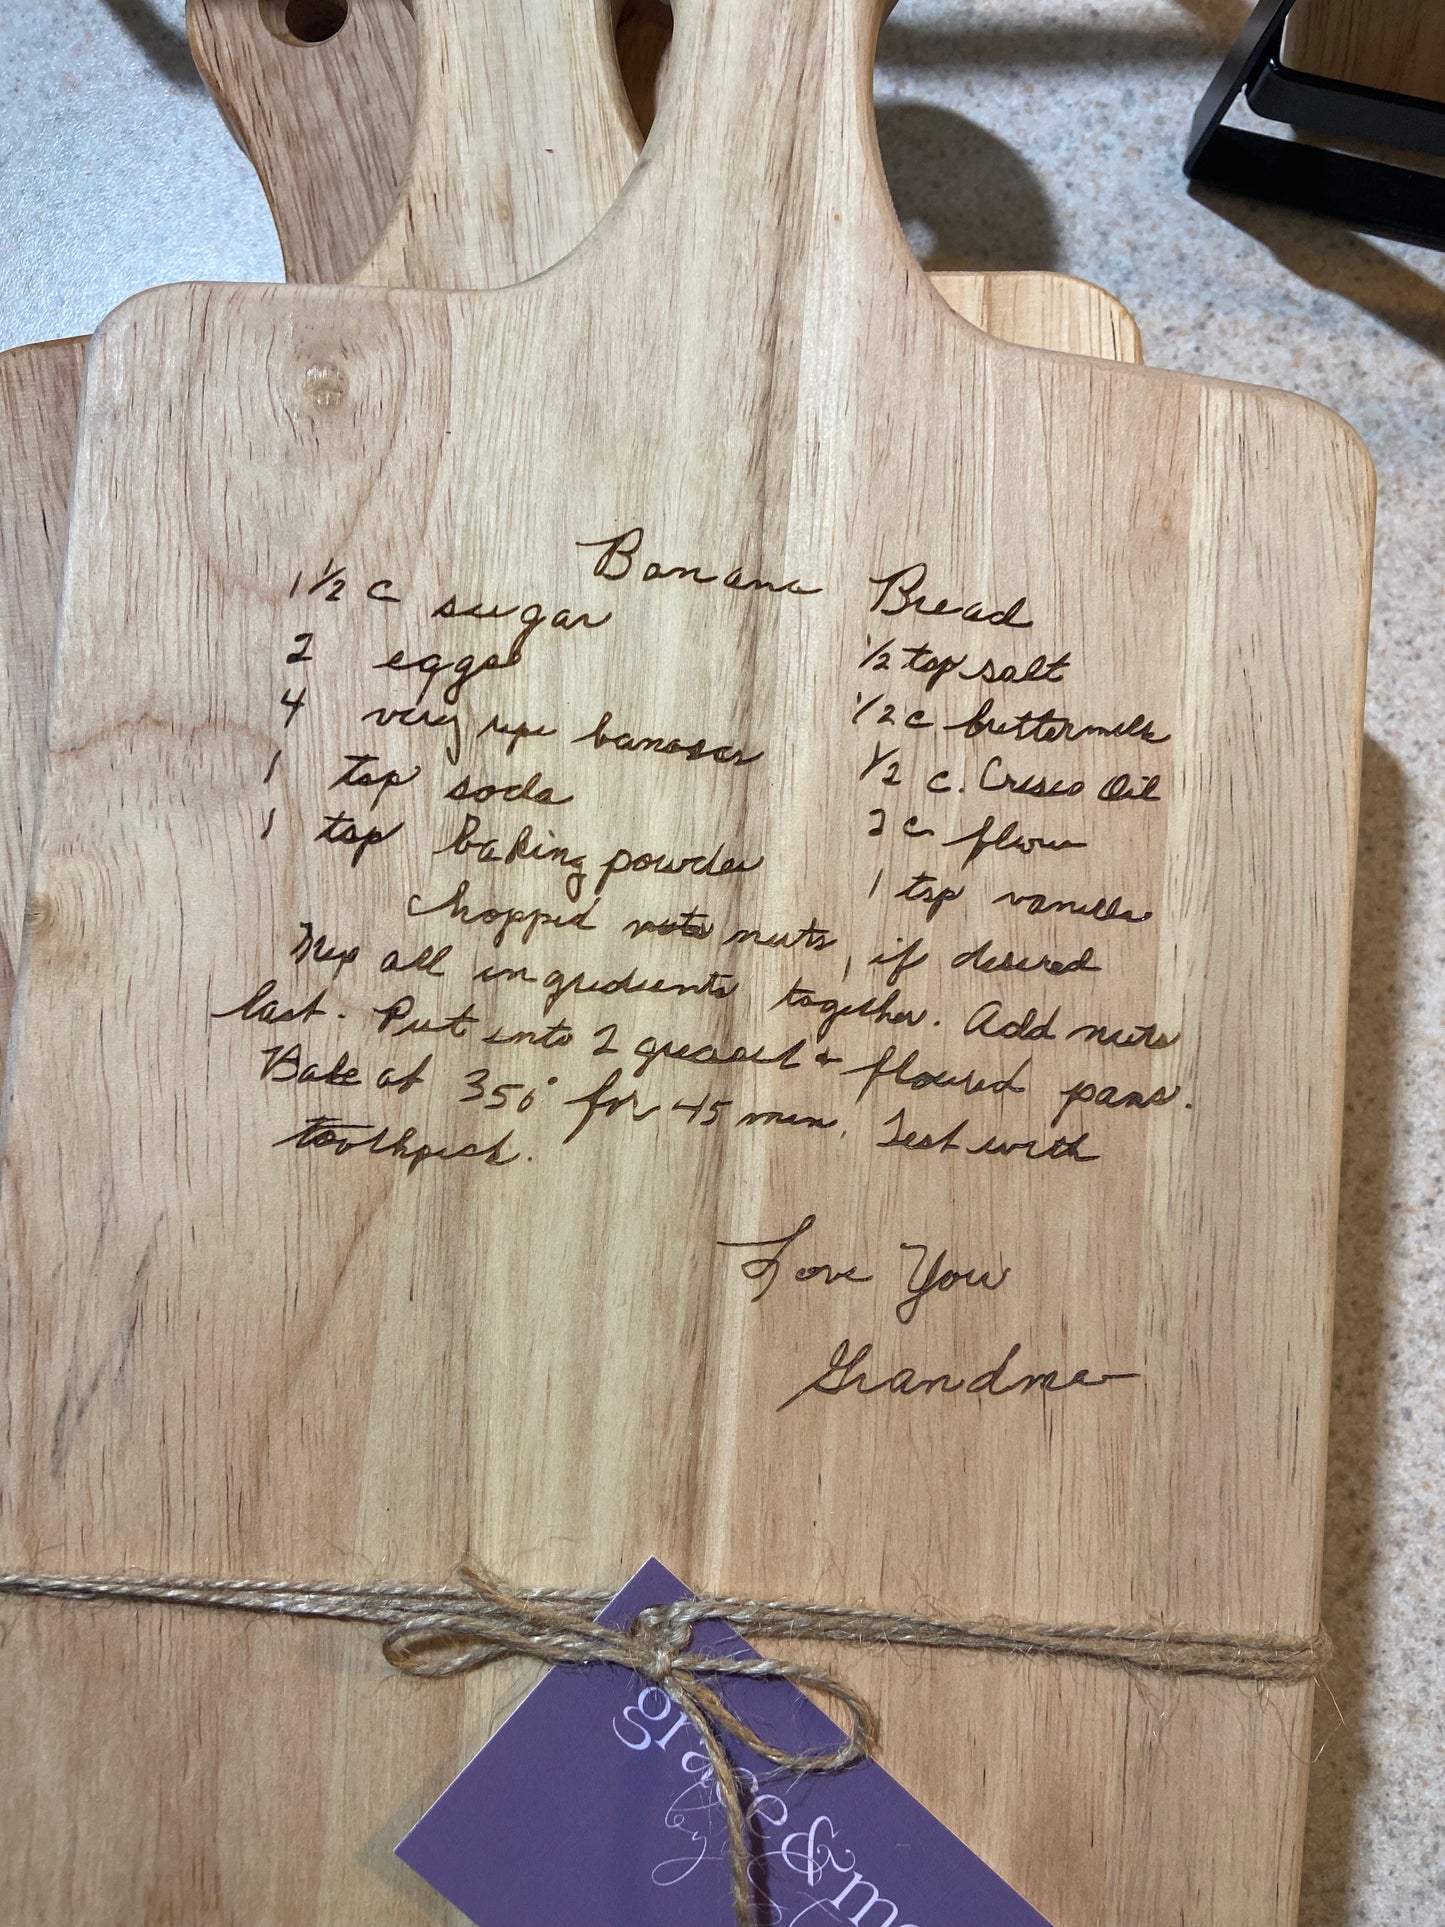 Banana Bread
1 1/2 c sugar
2 eggs
4 very ripe bananas
1 tsp soda
1 tsp baking powder
1/2 tsp salt
1/2 c buttermilk
1/2 c. Crisco Oil
2 c flour
1 tsp vanilla
chopped nuts nuts, if desired
Mix all ingredients together. Add nuts
last. Put into 2 greased & floured pans.
Bake at 350° for 45 min. Test with
toothpick.
Love You
Grandma
grace & m
by